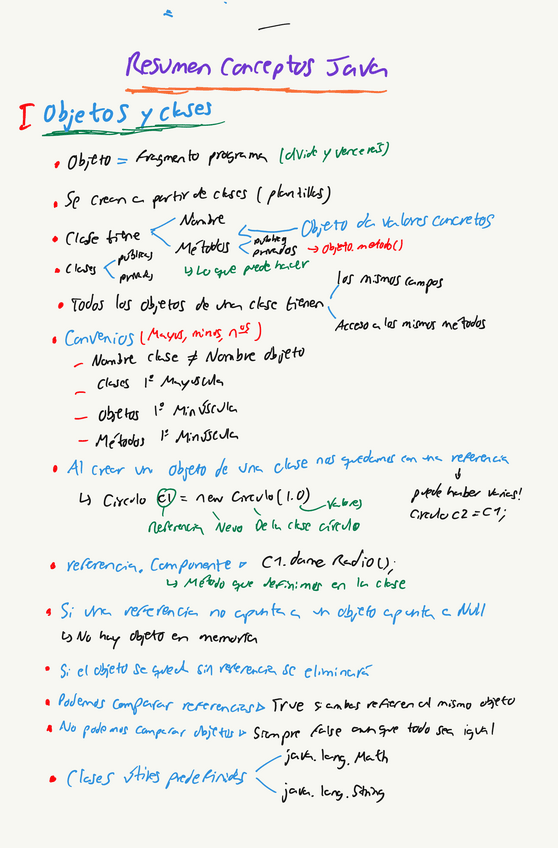 Resumen Conceptos Java
I Objetos y clases
• Objeto = Fragmento programa (divide y vencerás)
• Se crean a partir de clases (plantillas)
• Clase tiene
Nombre
Métodos
publicos
privados
Objeto da valores concretos
→ Objeto.metodo()
↳ Lo que puede hacer
• Clases
publicas
privadas
• Todos los objetos de una clase tienen
los mismos campos
Acceso a los mismos métodos
• Convenios (Mayus, minus, nºs)
– Nombre clase ≠ Nombre objeto
– Clases 1º Mayuscula
– Objetos 1º Minúscula
– Métodos 1º Minúscula
• Al crear un objeto de una clase nos quedamos con una referencia
↳ Circulo C1 = new Circulo(1.0)
Valores
Referencia Nuevo De la clase circulo
puede haber varias!
Circulo C2 = C1;
• referencia. Componente ▹ C1.dame Radio();
↳ Método que definimos en la clase
• Si una referencia no apunta a un objeto apunta a Null
↳ No hay objeto en memoria
• Si el objeto se queda sin referencia se eliminará
• Podemos comparar referencias ▹ True si ambas refieren al mismo objeto
• No podemos comparar objetos ▹ Siempre false aunque todo sea igual
• Clases útiles predefinidas
java.lang.Math
java.lang.String